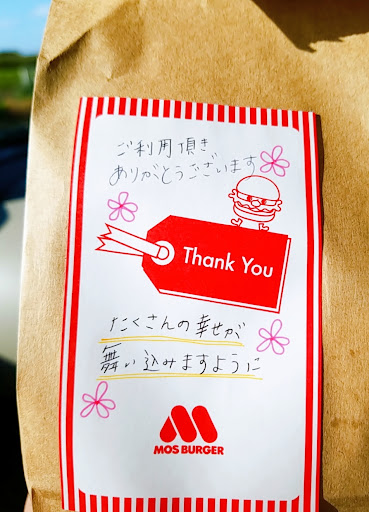 ご利用頂き
ありがとうございます
Thank You
たくさんの幸せが
舞い込みますように
MOS BURGER